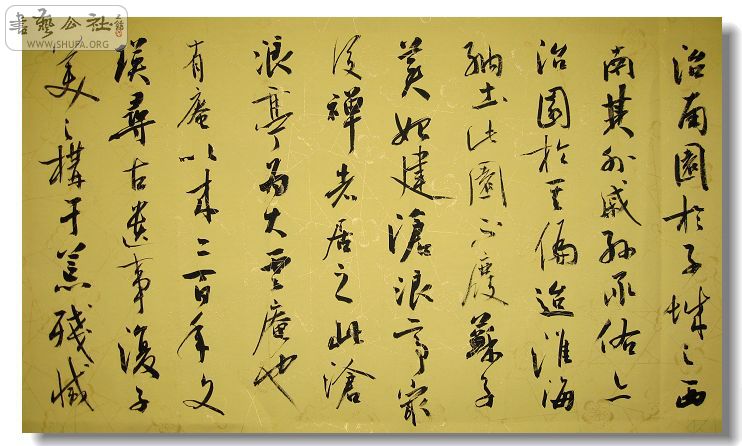 書藝公社
WWW.SHUFA.ORG
治南園於子城之西
南其外戚孫承佑亦
治園於其偏迨淮海
納土此園不廢蘇子
美始建滄浪亭最
後禪者居之此滄
浪亭為大雲庵也
有庵以來二百年文
瑛尋古遺事復子
美之構于荒殘滅